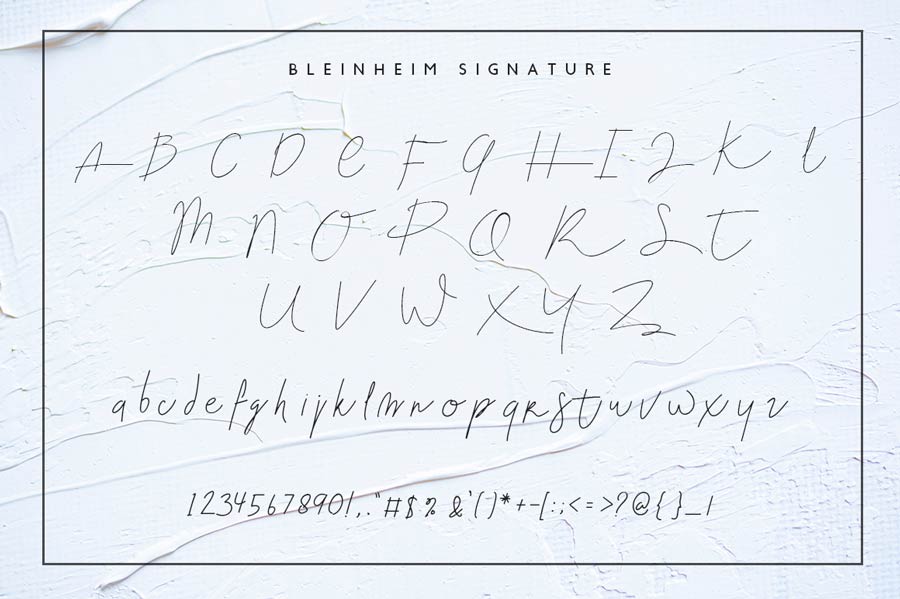 BLEINHEIM SIGNATURE
A B C D E F G H I J K L
M N O P Q R S T
U V W X Y Z
abcdefghijklmnopqrstuvwxyz
1234567890!,."#$%&'()*+-[:;<=>?@{}_|